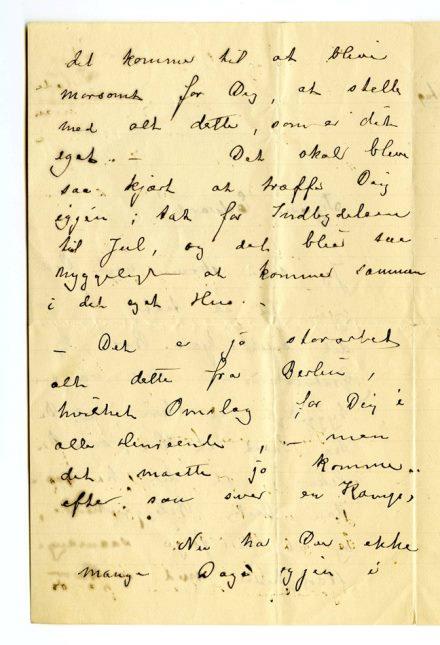 det komme til at blive
morsomt for Dig, at stelle
med alt dette, som er dit
eget. – Det skal blive
saa kjært at træffe Dig
igjen; tak for Indbydelsen
til Jul, og det blir saa
hyggeligt at komme sammen
i det eget Hus. –
– Det er jo storartet
alt dette fra Berlin,
hvilket Omslag for Dig i
alle Henseender, – men
det maatte jo komme
efter saa svær en Kamp,
Nu har Du ikke
mange Dage igjen i